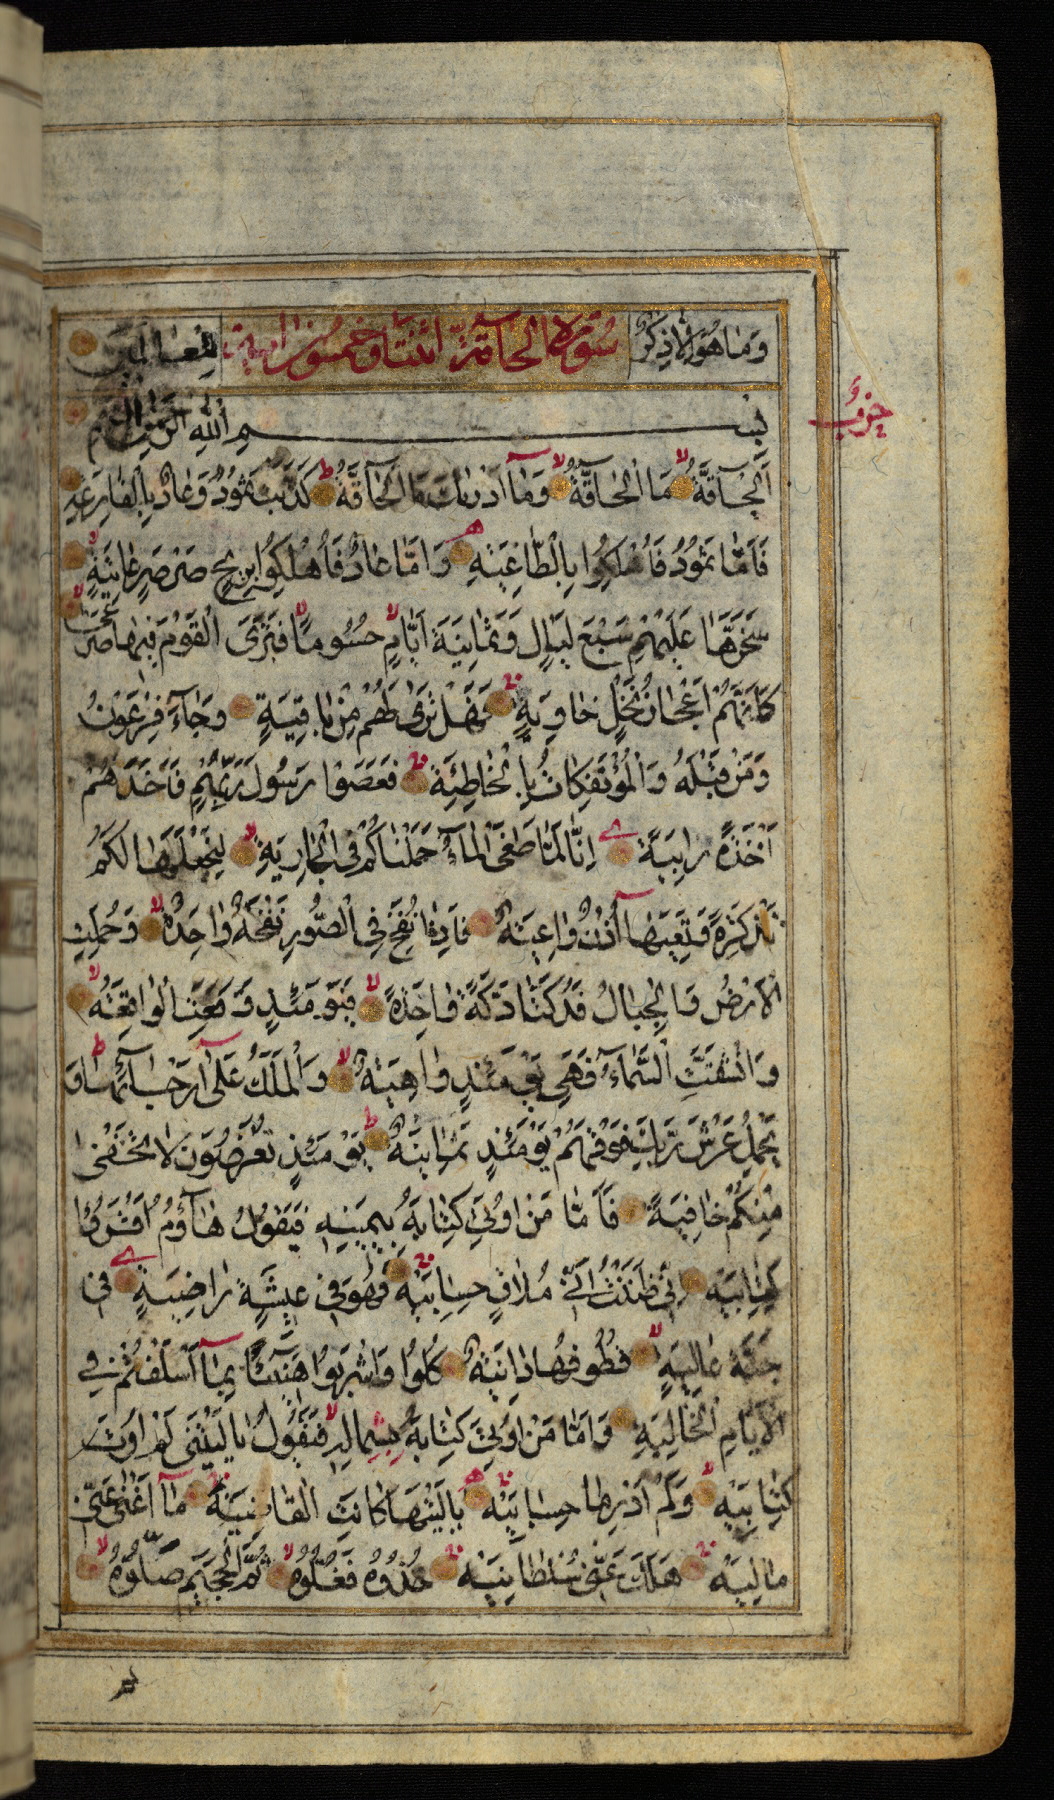 وَمَا هُوَ اِلَّا ذِكْرٌ سُورَةُ الحاقة اثنتان وخمسون اية لِلْعَالَمِينَ
بِسْمِ اللّٰهِ الرَّحْمٰنِ الرَّحِيمِ
حزب
اَلْحَآقَّةُ مَا الْحَآقَّةُ وَمَآ اَدْرٰىكَ مَا الْحَآقَّةُ كَذَّبَتْ ثَمُودُ وَعَادٌ بِالْقَارِعَةِ
فَاَمَّا ثَمُودُ فَاُهْلِكُوا بِالطَّاغِيَةِ وَاَمَّا عَادٌ فَاُهْلِكُوا بِرِيحٍ صَرْصَرٍ عَاتِيَةٍ
سَخَّرَهَا عَلَيْهِمْ سَبْعَ لَيَالٍ وَثَمَانِيَةَ اَيَّامٍ حُسُومًا فَتَرَى الْقَوْمَ فِيهَا صَرْعٰى
كَاَنَّهُمْ اَعْجَازُ نَخْلٍ خَاوِيَةٍ فَهَلْ تَرٰى لَهُمْ مِنْ بَاقِيَةٍ وَجَآءَ فِرْعَوْنُ
وَمَنْ قَبْلَهُ وَالْمُؤْتَفِكَاتُ بِالْخَاطِئَةِ فَعَصَوْا رَسُولَ رَبِّهِمْ فَاَخَذَهُمْ
اَخْذَةً رَابِيَةً اِنَّا لَمَّا طَغَى الْمَآءُ حَمَلْنَاكُمْ فِي الْجَارِيَةِ لِنَجْعَلَهَا لَكُمْ
تَذْكِرَةً وَتَعِيَهَآ اُذُنٌ وَاعِيَةٌ فَاِذَا نُفِخَ فِي الصُّورِ نَفْخَةٌ وَاحِدَةٌ وَحُمِلَتِ
الْاَرْضُ وَالْجِبَالُ فَدُكَّتَا دَكَّةً وَاحِدَةً فَيَوْمَئِذٍ وَقَعَتِ الْوَاقِعَةُ
وَانْشَقَّتِ السَّمَآءُ فَهِيَ يَوْمَئِذٍ وَاهِيَةٌ وَالْمَلَكُ عَلٰٓى اَرْجَآئِهَا وَ
يَحْمِلُ عَرْشَ رَبِّكَ فَوْقَهُمْ يَوْمَئِذٍ ثَمَانِيَةٌ يَوْمَئِذٍ تُعْرَضُونَ لَا تَخْفٰى
مِنْكُمْ خَافِيَةٌ فَاَمَّا مَنْ اُوتِيَ كِتَابَهُ بِيَمِينِهِ فَيَقُولُ هَآؤُمُ اقْرَؤُا
كِتَابِيَهْ اِنِّي ظَنَنْتُ اَنِّي مُلَاقٍ حِسَابِيَهْ فَهُوَ فِي عِيشَةٍ رَاضِيَةٍ فِي
جَنَّةٍ عَالِيَةٍ قُطُوفُهَا دَانِيَةٌ كُلُوا وَاشْرَبُوا هَنِيٓئًا بِمَآ اَسْلَفْتُمْ فِي
الْاَيَّامِ الْخَالِيَةِ وَاَمَّا مَنْ اُوتِيَ كِتَابَهُ بِشِمَالِهِ فَيَقُولُ يَا لَيْتَنِي لَمْ اُوتَ
كِتَابِيَهْ وَلَمْ اَدْرِ مَا حِسَابِيَهْ يَا لَيْتَهَا كَانَتِ الْقَاضِيَةَ مَآ اَغْنٰى عَنِّي
مَالِيَهْ هَلَكَ عَنِّي سُلْطَانِيَهْ خُذُوهُ فَغُلُّوهُ ثُمَّ الْجَحِيمَ صَلُّوهُ